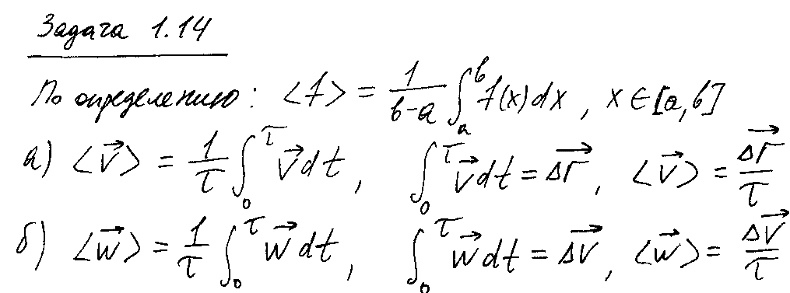 Задача 1.14
По определению: <f> = 1/(b-a) ∫_a^b f(x)dx, x∈[a,b]
а) <v⃗> = 1/τ ∫_0^τ v⃗dt, ∫_0^τ v⃗dt = Δr⃗, <v⃗> = Δr⃗/τ
б) <w⃗> = 1/τ ∫_0^τ w⃗dt, ∫_0^τ w⃗dt = Δv⃗, <w⃗> = Δv⃗/τ